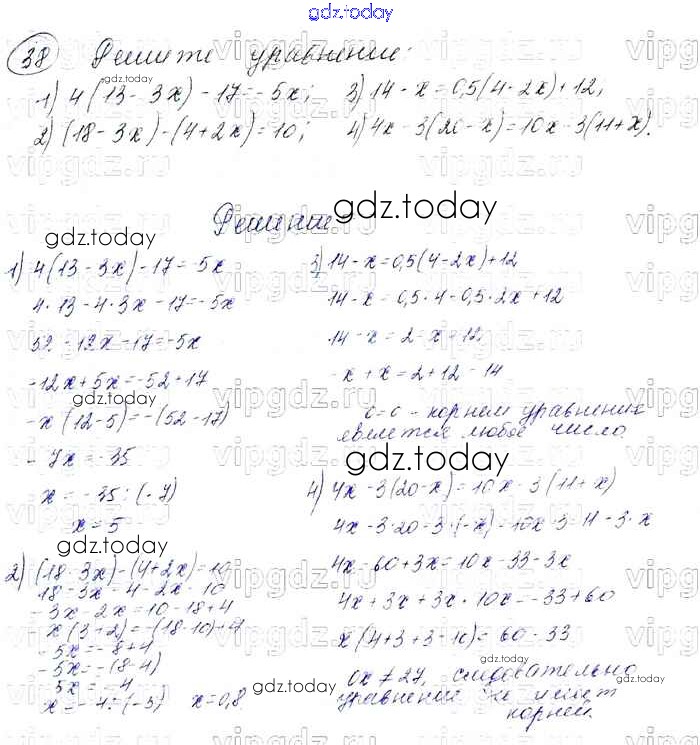 gdz.today
38 Решите уравнение:
1) 4(13 - 3x) - 17 = -5x; 3) 14 - x = 0,5(4 - 2x) + 12;
2) (18 - 3x) - (4 + 2x) = 10; 4) 4x - 3(20 - x) = 10x - 3(11 + x).
Решение
1) 4(13 - 3x) - 17 = -5x
4·13 - 4·3x - 17 = -5x
52 - 12x - 17 = -5x
-12x + 5x = -52 + 17
-x(12 - 5) = -(52 - 17)
-7x = -35
x = -35 : (-7)
x = 5
2) (18 - 3x) - (4 + 2x) = 10
18 - 3x - 4 - 2x = 10
-3x - 2x = 10 - 18 + 4
-x(3 + 2) = -(18 - 10) + 4
-5x = -8 + 4
-5x = -(8 - 4)
-5x = -4
x = -4 : (-5) x = 0,8
3) 14 - x = 0,5(4 - 2x) + 12
14 - x = 0,5·4 - 0,5·2x + 12
14 - x = 2 - x + 12
-x + x = 2 + 12 - 14
0 = 0 - корнем уравнения
является любое число.
4) 4x - 3(20 - x) = 10x - 3(11 + x)
4x - 3·20 - 3·(-x) = 10x - 3·11 - 3·x
4x - 60 + 3x = 10x - 33 - 3x
4x + 3x + 3x - 10x = -33 + 60
x(4 + 3 + 3 - 10) = 60 - 33
0x ≠ 27, следовательно
уравнение не имеет
корней.